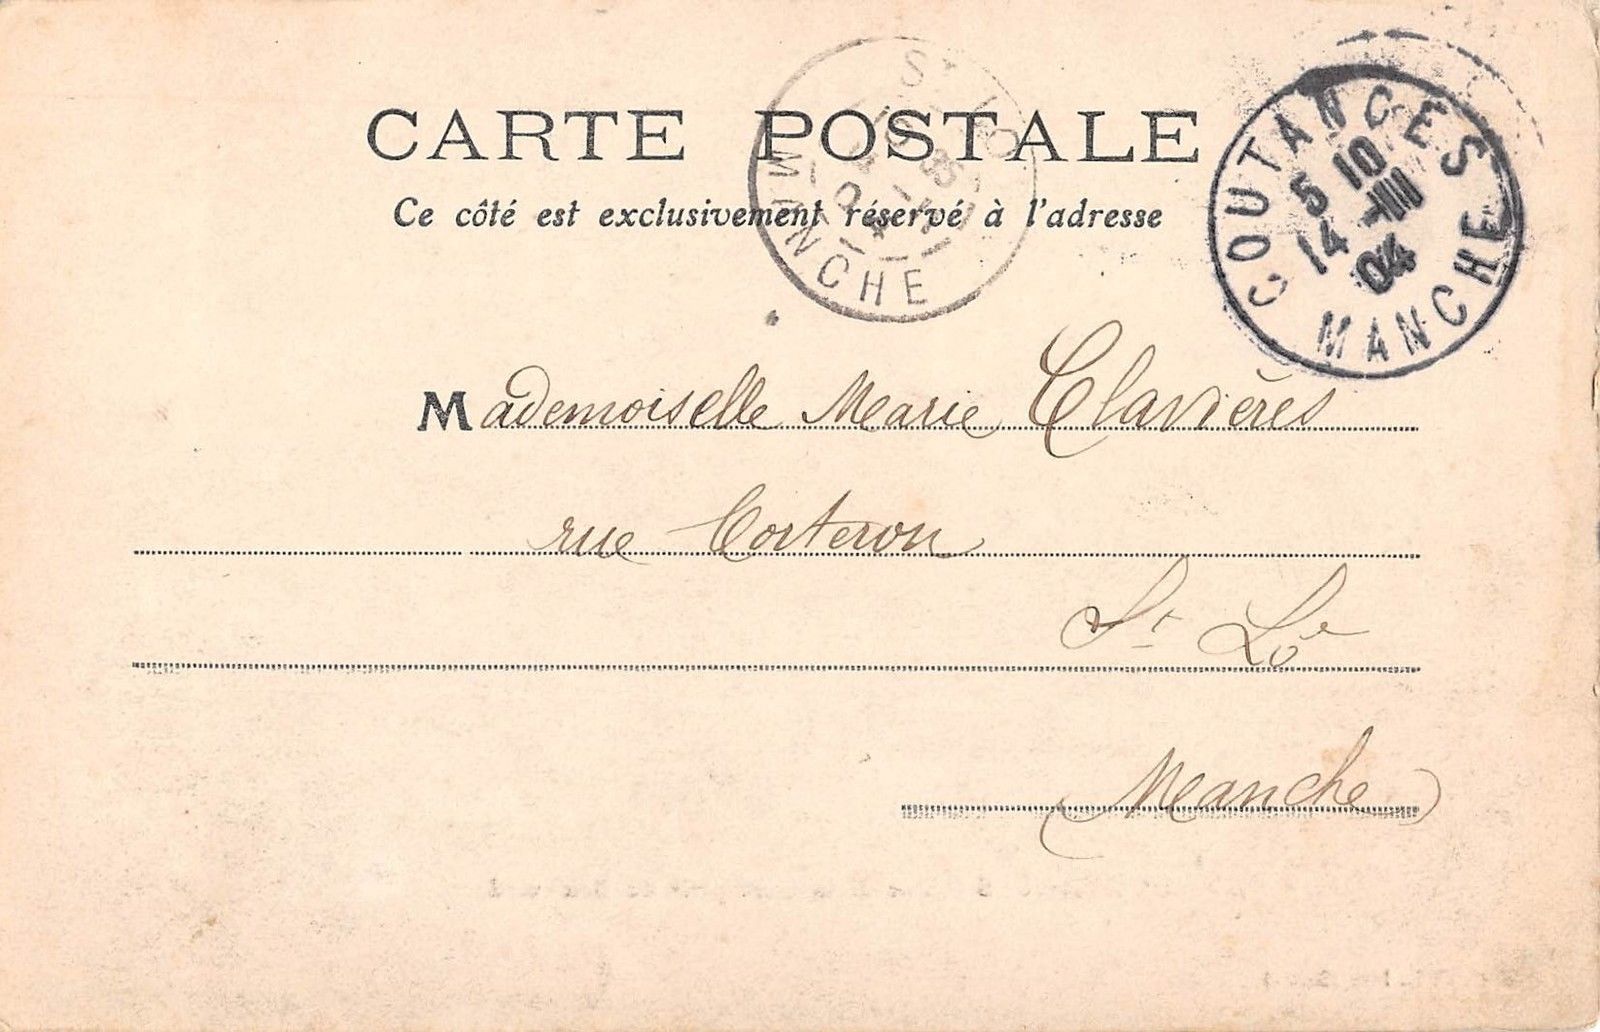 CARTE POSTALE
Ce côté est exclusivement réservé à l'adresse
ST LO
MANCHE
COUTANCES
5 10
14 -III
04
MANCHE
Mademoiselle Marie Clavières
rue Torteron
St Lô
Manche